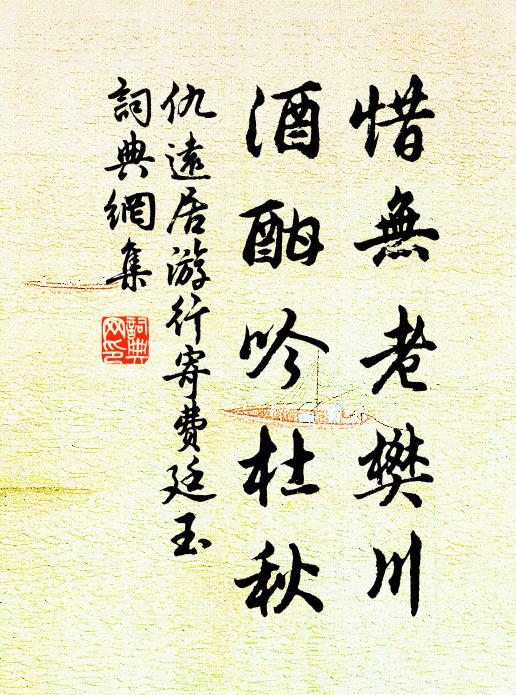 惜無老樊川
酒酣吟杜秋
仇遠居游行寄費廷玉
詞典網集
詞典
网印